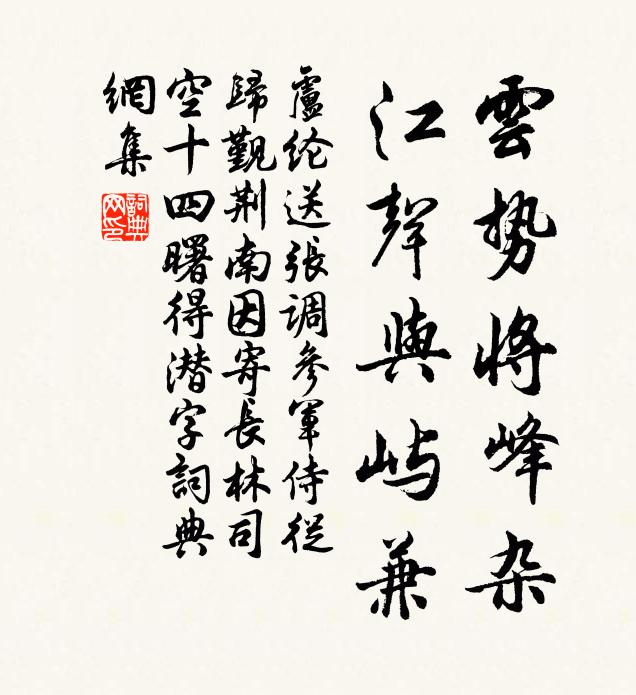 雲势將峰杂
江聲與屿兼
盧纶送張调參軍侍從
歸觐荆南因寄長林司
空十四曙得潜字詞典
網集
詞典网印